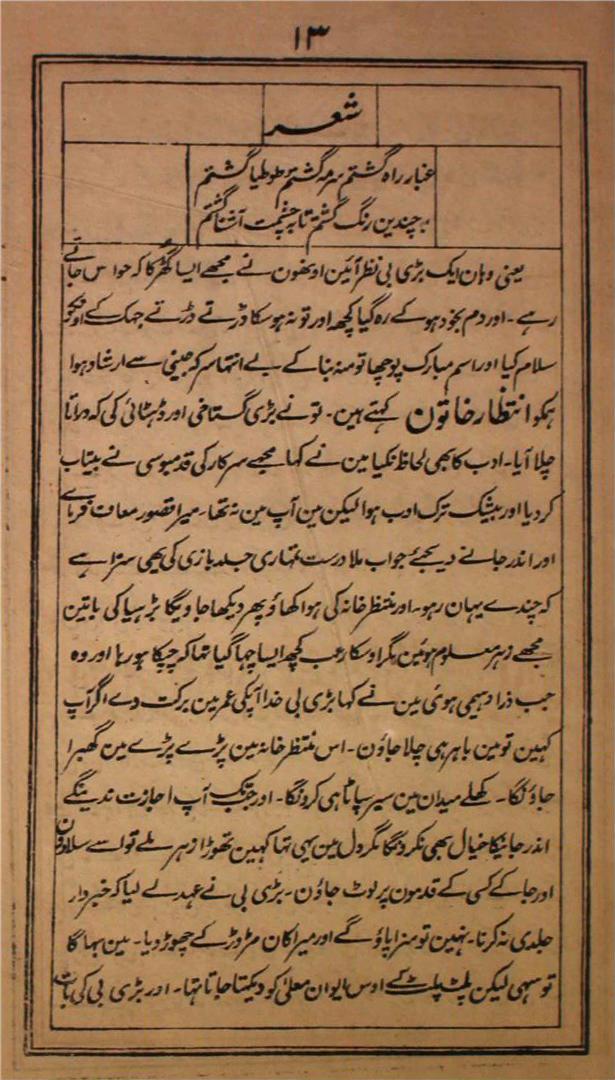 ۱۳
شعر
غبار راہ گشتم سرمہ گشتم طوطیا گشتم
بچندین رنگ گشتم تا بہ چشمت آشنا گشتم
یعنی وہان ایک بڑی بی نظر آئین اونھون نے مجھے ایسا گھڑکا کہ حواس جاتے
رہے۔ اور دم بخود ہو کے رہ گیا کچھ اور تو نہ ہو سکا ڈرتے ڈرتے جھک کے اونکو
سلام کیا اور اسم مبارک پوچھا تو منہ بنا کے بے انتہا سرکہ جبینی سے ارشاد ہوا
ہمکو انتظار خاتون کہتے ہین۔ تو نے بڑی گستاخی اور ڈہٹائی کی کہ دراتا
چلا آیا۔ ادب کا بھی لحاظ نکیا مین نے کہا مجھے سرکار کی قدمبوسی نے بیتاب
کر دیا اور بیشک ترک ادب ہوا لیکن مین آپ مین نہ تھا۔ میرا قصور معاف فرمائے
اور اندر جانے دیجئے جواب ملا درست تمہاری جلد بازی کی یھی سزا ہے
کہ چندے یہان رہو۔ اور منتظر خانہ کی ہوا کھاؤ پھر دیکھا جاویگا بڑہیا کی باتین
مجھے زہر معلوم ہوئین مگر اوسکا رعب کچھ ایسا چہا گیا تہا کہ چپکا ہو رہا اور وہ
جب ذرا دہیمی ہوئی مین نے کہا بڑی بی خدا آپکی عمر مین برکت دے اگر آپ
کہین تو مین باہر ہی چلا جاؤن۔ اس منتظر خانہ مین پڑے پڑے مین گھبرا
جاؤنگا۔ کھلے میدان مین سیر سپاٹا ہی کرونگا۔ اور جب تک آپ اجازت ندینگے
اندر جانیکا خیال بھی نکرونگا مگر دل مین یہی تہا کہین تھوڑا زہر ملے تو اسے سلا دون
اور جا کے کسی کے قدمون پر لوٹ جاؤن۔ بڑی بی نے عہد لے لیا کہ خبردار
جلدی نہ کرنا۔ نہین تو سزا پاؤ گے اور میرا کان مڑوڑ کے چھوڑ دیا۔ مین بہاگا
تو سہی لیکن پلٹ پلٹ کے اوس ایوان معلیٰ کو دیکہتا جاتا تہا۔ اور بڑی بی کی بات